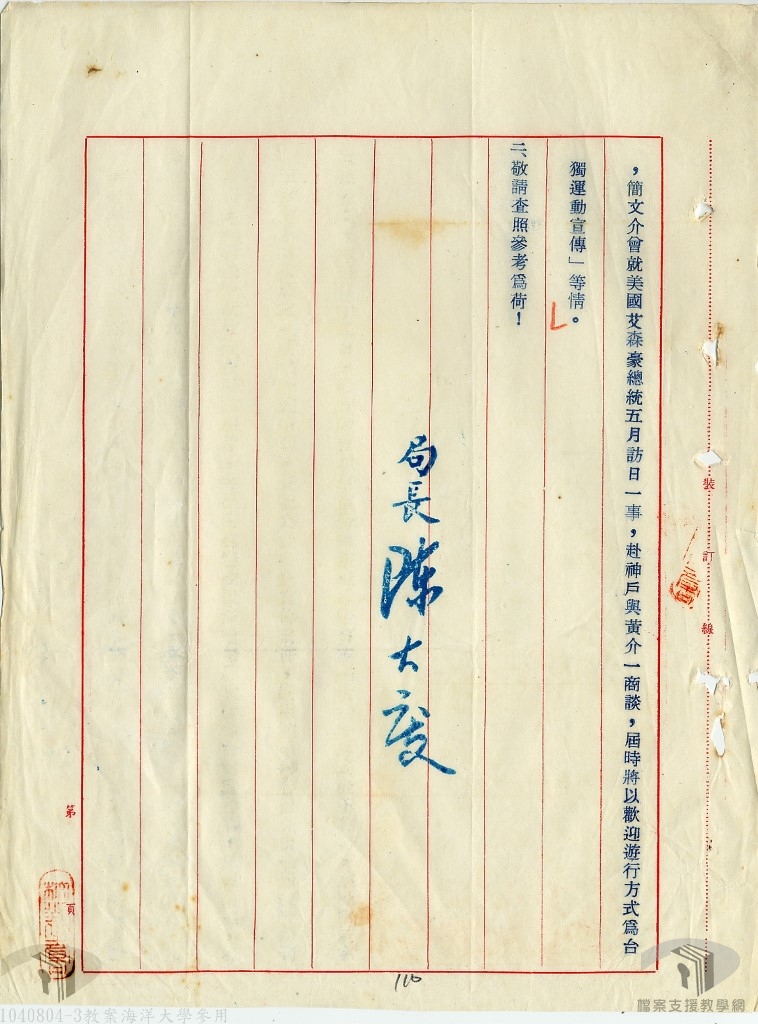 ，簡文介曾就美國艾森豪總統五月訪日一事，赴神戶與黃介一商談，屆時將以歡迎遊行方式為台
獨運動宣傳」等情。
二、敬請查照參考為荷！
局長 陳大慶
裝訂線
第
頁
110
檔案支援教學網
1040804-3教案海洋大學參用